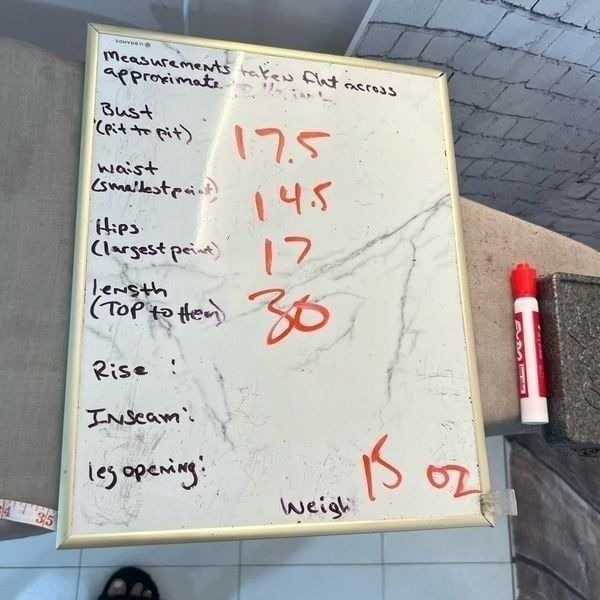 U BRANDS
Measurements taken flat across
approximate
Bust
(pit to pit) 17.5
waist
(smallest point) 14.5
Hips
(largest point) 17
length
(TOP to Hem) 30
Rise :
Inseam:
leg opening:
Weigh 15 oz
34 35
EXPO